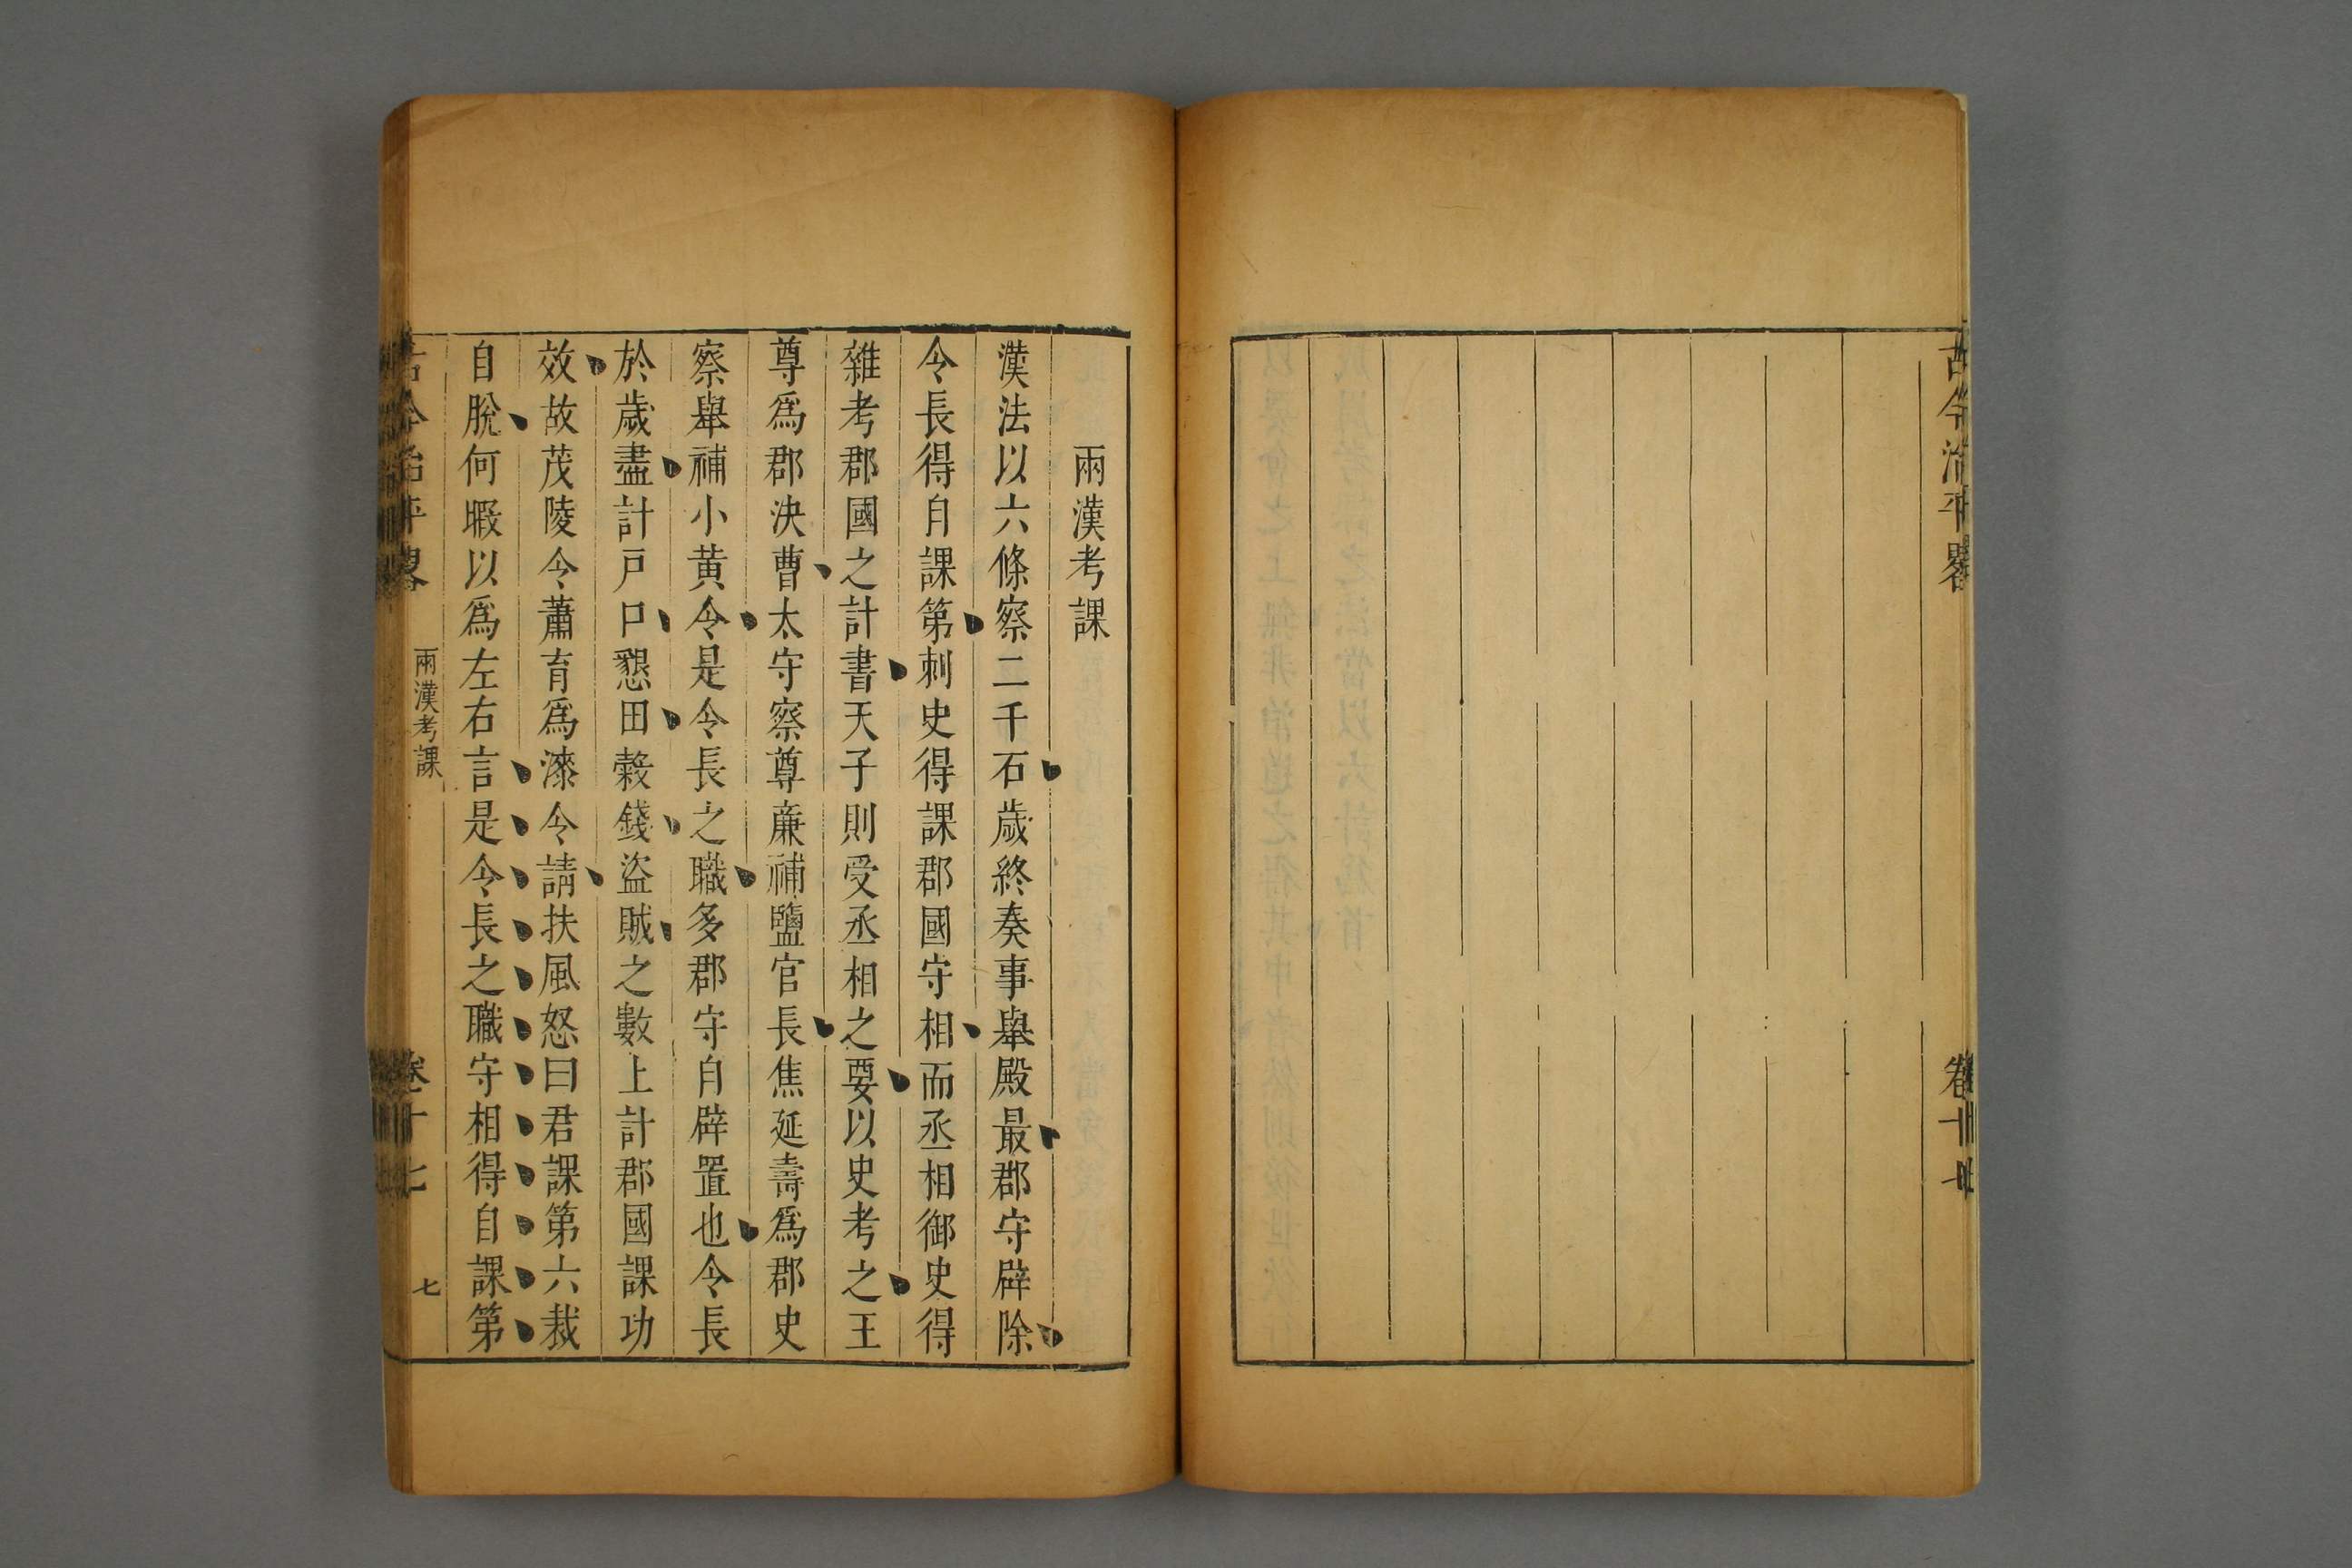 古今治平畧
卷十七
兩漢考課
漢法以六條察二千石歲終奏事舉殿最郡守辟除
令長得自課第刺史得課郡國守相而丞相御史得
雜考郡國之計書天子則受丞相之要以史考之王
尊爲郡決曹太守察尊廉補鹽官長焦延壽爲郡史
察舉補小黃令是令長之職多郡守自辟置也令長
於歲盡計戶口懇田穀錢盜賊之數上計郡國課功
效故茂陵令蕭育爲漆令請扶風怒曰君課第六裁
自脫何暇以爲左右言是令長之職守相得自課第
古今治平畧
兩漢考課
卷十七
七